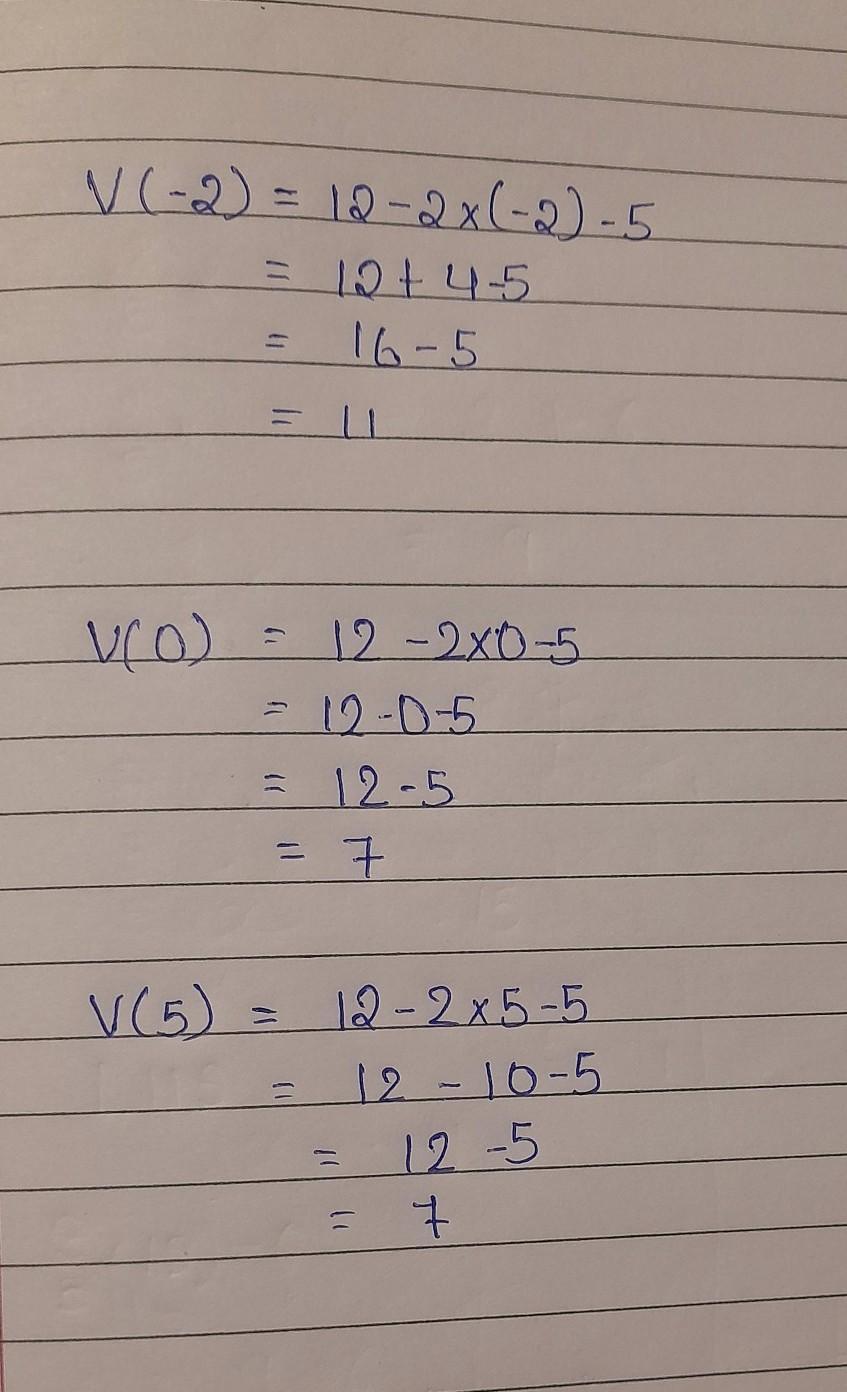 V(-2) = 12-2×(-2)-5
= 12+4-5
= 16-5
= 11
V(0) = 12-2×0-5
= 12-0-5
= 12-5
= 7
V(5) = 12-2×5-5
= 12-10-5
= 12-5
= 7